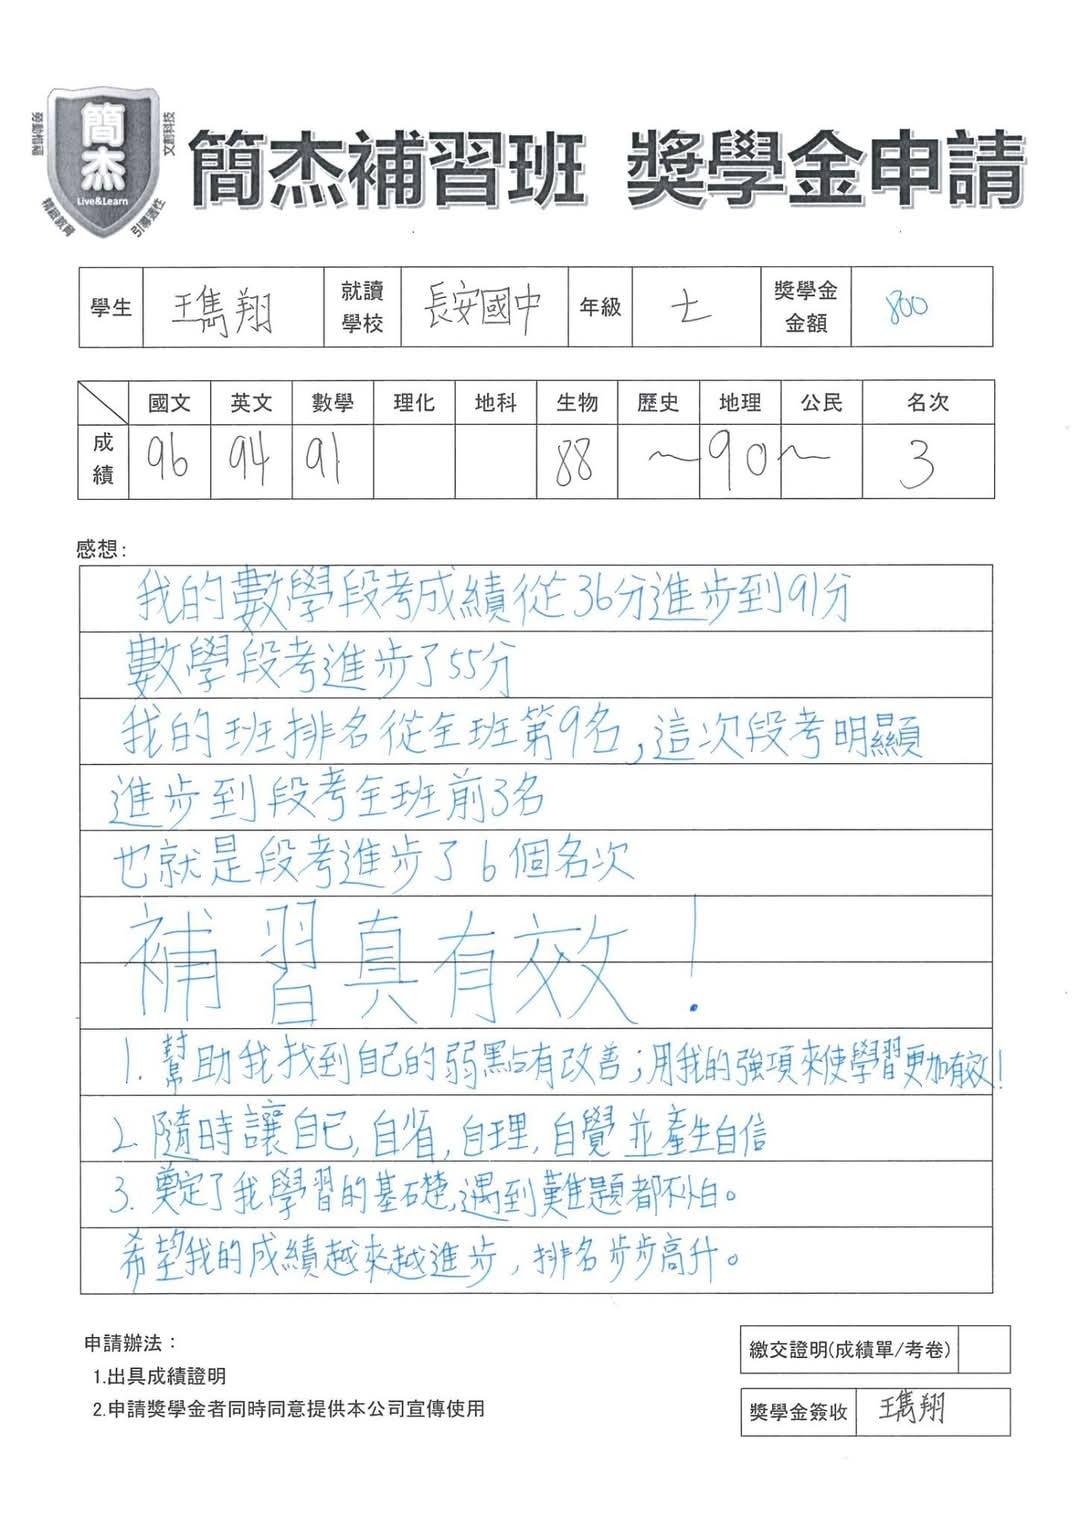 簡杰
Live&Learn
勞動市福
精緻教育
引導適性
文創科技
簡杰補習班 獎學金申請
學生 王雋翔 就讀學校 長安國中 年級 七 獎學金金額 800
國文 英文 數學 理化 地科 生物 歷史 地理 公民 名次
成績 96 94 91 88 ~90~ 3
感想:
我的數學段考成績從36分進步到91分
數學段考進步了55分
我的班排名從全班第9名,這次段考明顯
進步到段考全班前3名
也就是段考進步了6個名次
補習真有效!
1. 幫助我找到自己的弱點有改善;用我的強項來使學習更加有效!
2. 隨時讓自己,自省,自理,自覺並產生自信
3. 奠定了我學習的基礎,遇到難題都不怕。
希望我的成績越來越進步,排名步步高升。
申請辦法:
1.出具成績證明
2.申請獎學金者同時同意提供本公司宣傳使用
繳交證明(成績單/考卷)
獎學金簽收 王雋翔